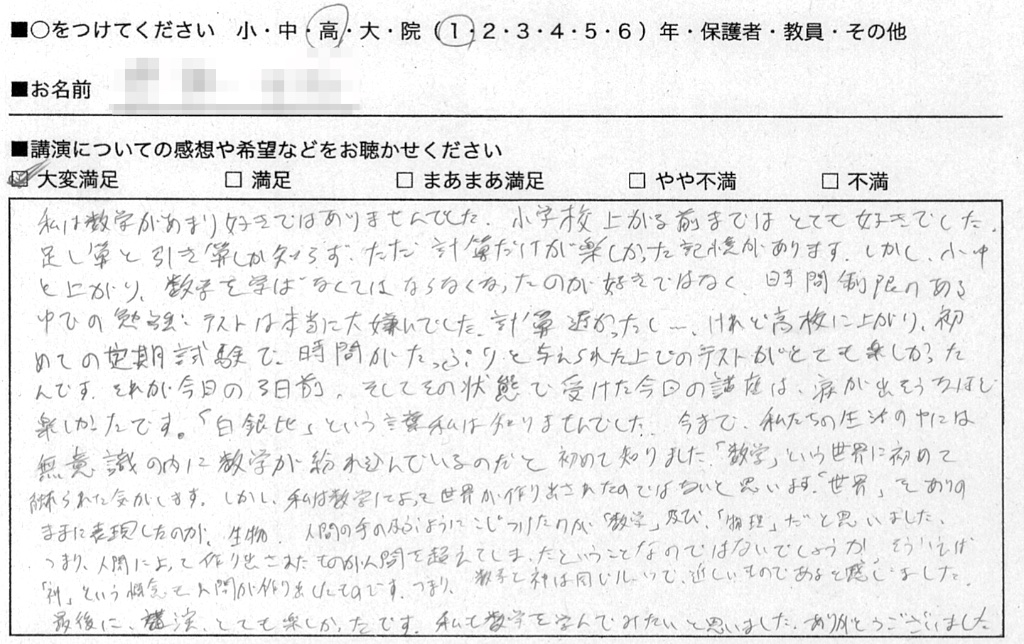 ■○をつけてください 小・中・高・大・院（1・2・3・4・5・6）年・保護者・教員・その他
■お名前
■講演についての感想や希望などをお聴かせください
☑ 大変満足 □ 満足 □ まあまあ満足 □ やや不満 □ 不満
私は数学があまり好きではありませんでした。小学校上がる前まではとても好きでした。
足し算と引き算しか知らず、ただ計算だけが楽しかった記憶があります。しかし、小中
と上がり、数学を学ばなくてはならなくなったのが好きではなく、時間制限のある
中での勉強、テストは本当に大嫌いでした。計算遅かったし…。けれど高校に上がり、初
めての定期試験で、時間がたっぷりと与えられた上でのテストがとても楽しかった
んです。それが今日の3日前。そしてその状態で受けた今日の講座は、涙が出そうなほど
楽しかったです。「白銀比」という言葉私は知りませんでした。今まで、私たちの生活の中には
無意識の内に数学が紛れ込んでいるのだと初めて知りました。「数学」という世界に初めて
触られた気がします。しかし、私は数学によって世界が作り出されたのではないと思います。「世界」をありの
ままに表現したのが、生物、人間の手の及ぶようにこじつけたのが「数学」及び、「物理」だと思いました。
つまり、人間によって作り出されたものが人間を超えてしまったということなのではないでしょうか。そういえば
「神」という概念も人間が作り出したものです。つまり、数学と神は同じルーツで、近しいものであると感じました。
最後に、講演、とても楽しかったです。私も数学を学んでみたいと思いました。ありがとうございました